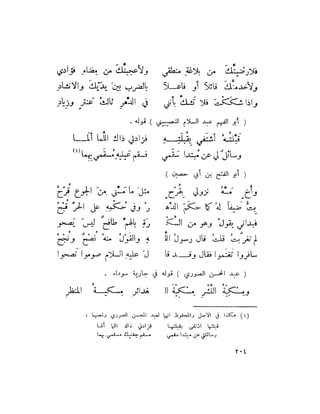 فلارضينّك من بلاغة منطقي ولأعجبنّك من مضاء فؤادي
ولأخدمنّك قائلاً أو فاعلاً بالضرب بين يديك والانشاد
واذا شككت فلا تشك بأنني في الدهر ثالث عنتر وزياد
( أبو الفهم عبد السلام النصيبيني ) قوله .
قبّلته أشتفي بقبلته فزادني ذاك اللما ألما
وسائل لي عن مبتدا سقمي فسقم عينيه مسقمي بهما (١)
( أبو الفتح بن أبي حصين )
وأخ مسّه نزولي بقرح مثل ما مسّني من الجوع قرح
بت ضيفاً له كما حكم الدهر وفي حكمه على الحر قبح
فبداني يقول وهو من السكرة بالهم طافح ليس يصحو
لم تغربت قلت قال رسول الله والقول منه نصح ونجح
سافروا تغنموا فقال وقد قال عليه السلام صوموا تصحوا
( عبد المحسن الصوري ) قوله في جارية سوداء .
ومسكيّة النشر مسكيّة الغدائر مسكيّة المنظر
(١) هكذا في الاصل والمحفوظ انها لعبد المحسن الصوري ونصها :
قبلتها اشتفي بقبلتها فزادني ذاك اللما ألما
وسائلتي عن مبتدا سقمي سقم جفنيك مسقمي بهما
٢٠٤